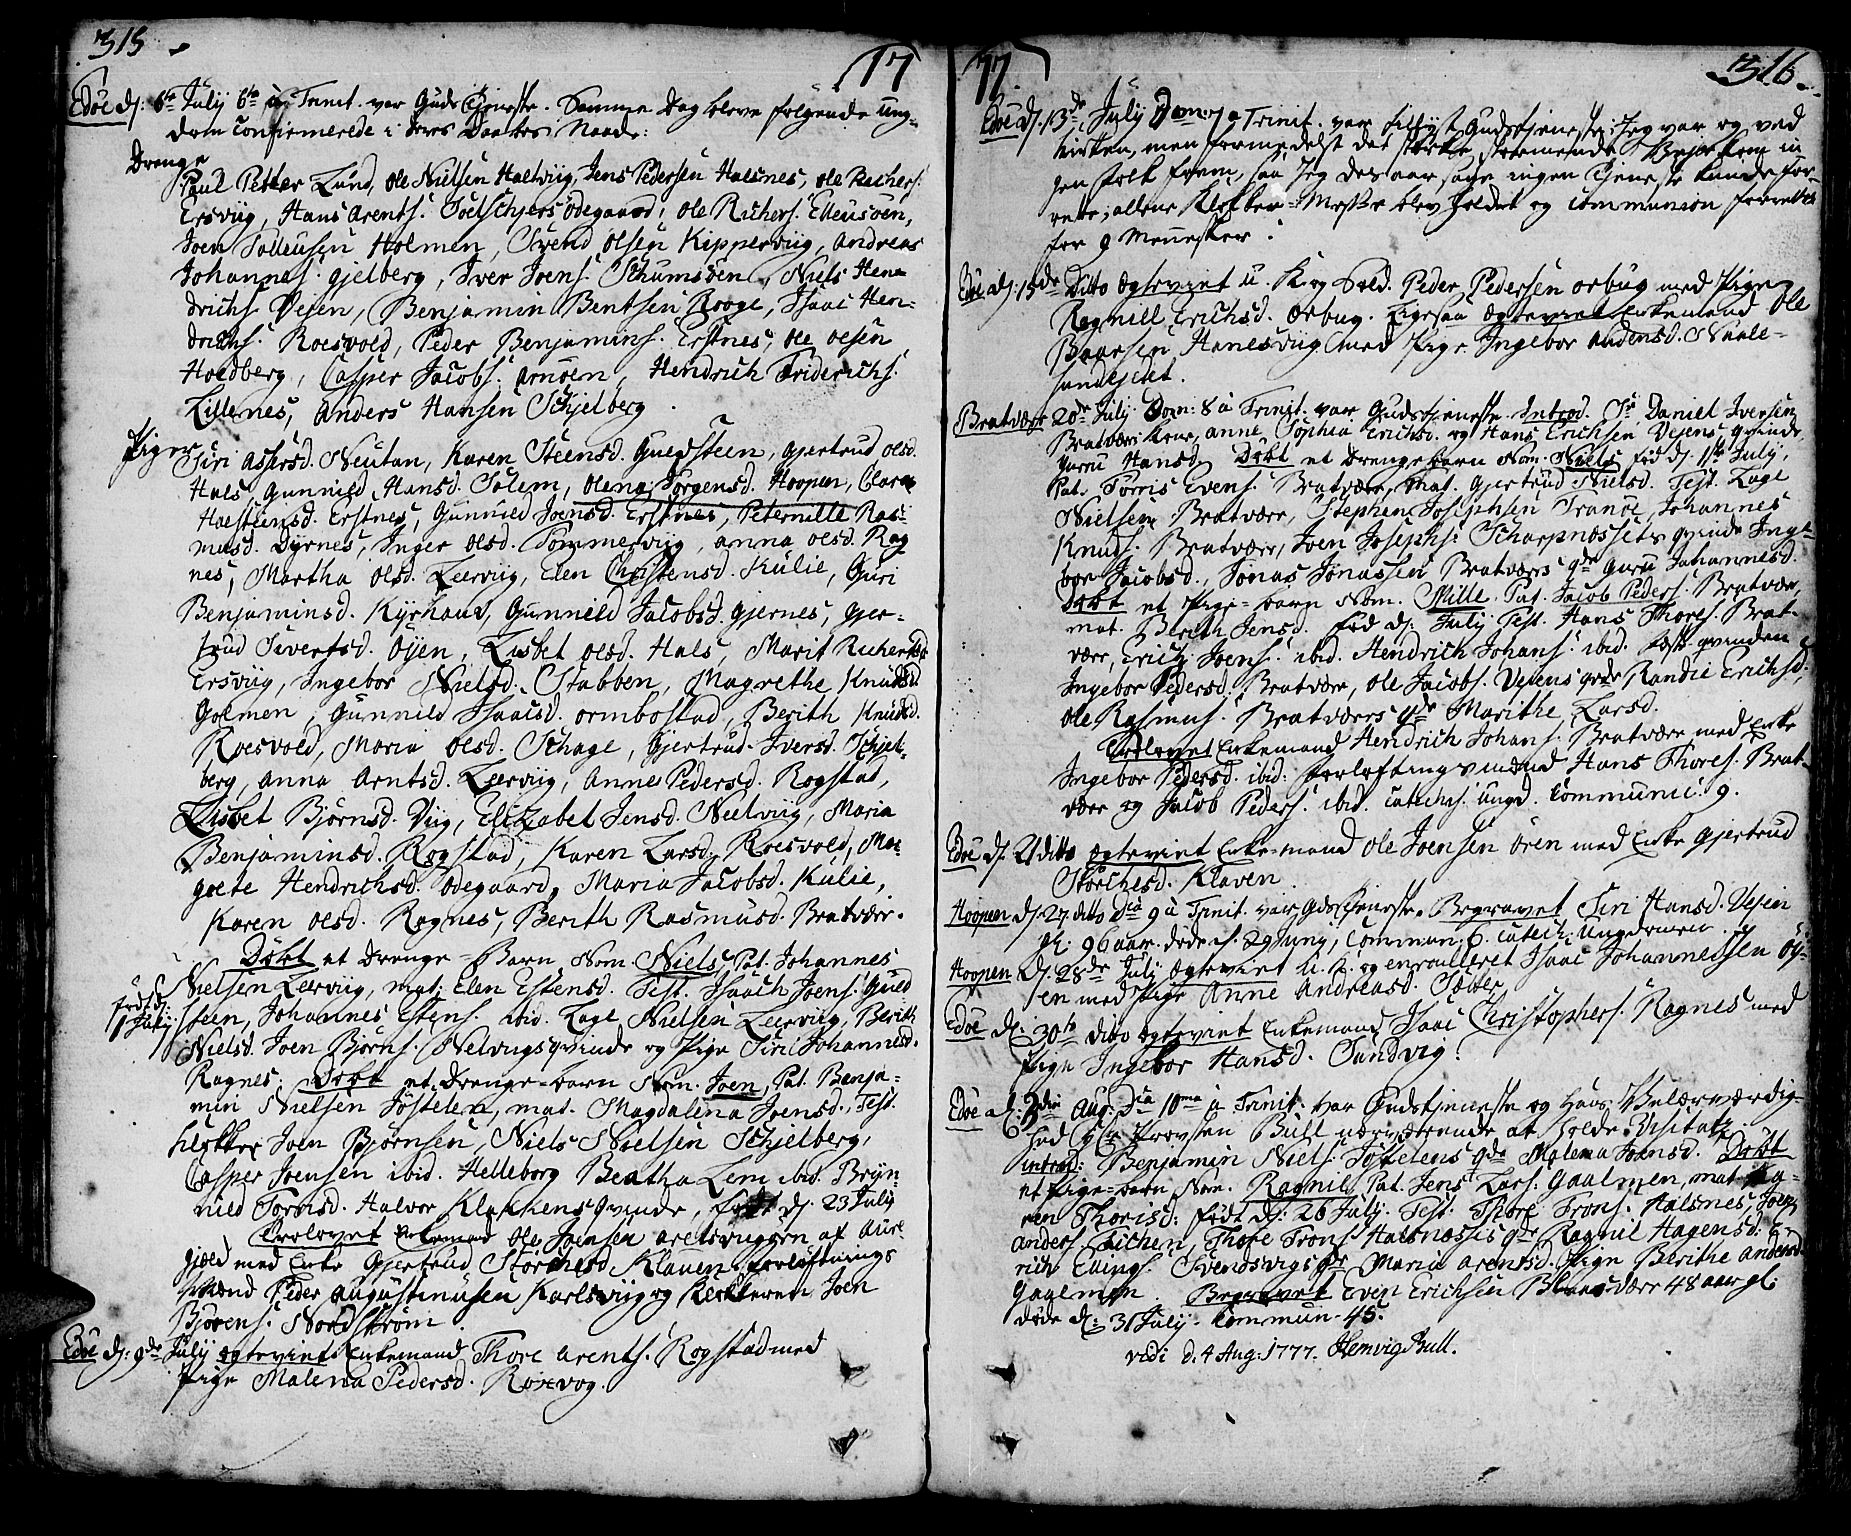 315
17
Edöe d: 6te July 6te à Trinit. var Guds Tjeneste. Samme Dag bleve følgende Ung-
dom Confirmerede i deres Daabes Naade:
Drenge
Paul Petter Lund, Ole Nielsen Haltviig, Jens Pedersen Halsnes, Ole Rachers:
Ersviig, Hans Arents: Ödegaard, Ole Richers: Ellensøen,
Joen Tollensen Holmen, Svend Olsen Kipperviig, Andreas
Johannes: Gjelberg, Iver Joens: Schumsöen, Niels Hen-
drichs: Vejen, Benjamin Bentsen Rooge, Isaac Hen-
drichs: Roesvold, Peder Benjamins: Erstnes, Ole Olsen
Holdberg, Casper Jacobs: Arnöen, Hendrich Friderichs:
Lillenes, Anders Hansen Schjelberg.
Piger
Siri Assersd. Neutan, Karen Steensd. Guldsteen, Gjertrud Olsd.
Hals, Gunnild Hansd. Solem, Olena Jörgensd. Hoopen, Claren
Halsteensd. Erstnes, Gunnild Joensd. Erstnes, Peternille Ras-
musd. Dyrnes, Inger Olsd. Tømmerviig, Anna Olsd. Rag
nes, Martha Olsd. Leerviig, Elen Christensd. Kulie, Guri
Benjaminsd. Kyrhaug, Gunnild Jacobsd. Gjernes, Gjer-
trud Sivertsd. Öyen, Lisbet Olsd. Hals, Marit Richertsd.
Ersviig, Ingebor Nielsd. Stabben, Magrethe Knudsd.
Golmen, Gunnild Isaacsd. Ormbostad, Berith Knudsd.
Roesvold, Maria Olsd. Schage, Gjertrud Iversd. Schjel-
berg, Anna Arntsd. Leerviig, Anne Pedersd. Rogstad,
Lisbet Björnsd. Viig, Elizabet Jensd. Neelviig, Maria
Benjaminsd. Rogstad, Karen Larsd. Roesvold, Mar-
grete Hendrichsd. Ödegaard, Maria Jacobsd. Kulie,
Karen Olsd. Ragnes, Berith Rasmusd. Bratvær.
Döbt et Drenge-Barn Nom. Niels Pat. Johannes
Nielsen Leerviig, mat: Elen Estensd. Test. Isaach Joens: Guld
föd d:
1 July
steen, Johannes Estens: ibid. Lage Nielsen Leerviig, Berith
Nielsd. Joen Björns: Nelvigs qvinde og Pige Siri Johannesd.
Ragnes. Döbt et Drenge-barn Nom. Joen, Pat. Benja-
min Nielsen Jöstelen, mat. Magdalena Joensd., Test.
klokker Joen Bjørnsen, Niels Nielsen Schjelberg,
Casper Joensen ibid. Helleborg Beatha Lem ibid. Bryn-
nild Torrisd. Halvor Klokkens qvinde, født d: 23 July
Trolovet Enkemand Ole Joensen af Aure-
gjeld med Enke Gjertrud Storchesd. Klaven. Forløftnings
Mænd Peder Augustinusen Karlsviig og Klokkeren Joen
Björns: Nordstrøm.
Edöe d: 9de July Egteviet Enkemand Thore Arents: Rogstad med
Pige Malena Pedersd. Roxvog.
77.
316
Edöe d: 13de July Dom 7 à Trinit. var tillyst Gudstjeneste; Jeg var og ved
Kirken, men formedelst det stærke stormende Vejr kom in
gen folk frem, saa Jeg dersaarsage ingen Tjeneste kunde for-
rette; allene Klokker-Messe blev holdet og Communion forrettet
for 9 Mennesker.
Edöe d: 15de Ditto Egteviet U. K. og Sold. Peder Pedersen Orbug med Pige
Ragnill Erichsd. Orbug. Ligesaa Egteviet Enkemand Ole
Baarsen Hanesviig med Pige Ingebor Andersd. Naale-
sundseidet.
Bratvær 20de July Dom: 8 à Trinit. var Gudstjeneste. Introd. Sr. Daniel Iversen
Bratværs Kone, Anne Sophia Erichsd. og Hans Erichsen Vejens qvinde
Guru Hansd. Döbt et Drengebarn Nom. Niels föd d: 1ste July,
Pat. Torris Evens: Bratvær, mat. Gjertrud Nielsd. Test. Lage
Nielsen Bratvær, Stephen Josephsen Tranöe, Johannes
Knuds: Bratvær, Joen Josephs: Scharpnæssets qvinde Inge-
bor Jacobsd., Jonas Jonassen Bratværs qde Guru Johannesd.
Döbt et Pige-barn Nom. Mille. Pat. Jacob Peders: Bratvær,
mat. Berith Jensd. föd d: July Test. Hans Thores: Brat-
vær, Erich Joens: ibid. Hendrich Johans: ibid. fæste qvinden
Ingebor Pedersd. Bratvær, Ole Jacobs. Vejens qvde Randie Erichsd.,
Ole Rasmus: Bratværs qde Marithe Larsd.
Trolovet Enkemand Hendrich Johans: Bratvær med Enke
Ingebor Pedersd. ibid: Forløftingsmænd Hans Thores: Brat-
vær og Jacob Peders: ibid. Catechis: Ungd. Communic: 9.
Edöe d: 21 ditto Egteviet Enkemand Ole Joensen Ören med Enke Gjertrud
Storchesd. Klaven.
Hoopen d: 27. ditto Dca 9 à Trinit. var Gudstjeneste. Begravet Siri Hansd. Vejen
gl: 96 aar. døde d. 29 Juny, Commun: 6. Catech: Ungdommen.
Hoopen d: 28de July Egteviet U. K. og enroulleret Isaac Johannessen Öy-
en med Pige Anne Andreasd. Sætter.
Edöe d: 30te dito Egteviet Enkemand Isaac Christophers: Ragnes med
Pige Ingebor Hansd. Sundvig.
Edöe d: 3die Aug: Dca 10ma à Trinit. var Gudstjeneste og Hans Velærværdig-
hed Hr. Provsten Bull nærværende at holde Visitatz.
introd: Benjamin Niels: Jöstelens qde Malena Joensd. Döbt
et Pige-barn Nom. Ragnil, Pat. Jens Lars: Gaalmen, mat. Ka-
ren Thorisd: født d: 26 July. Test. Thore Trons: Halsnes, Joen
Anders: Eichen, Thore Trons: Halsnæssis qde Ragnil Hagensd. E-
rich Ellings: Svendsvigs qde Maria Arentsd. Pige Berithe Andersd.
Gaalmen. Begravet Even Erichsen Blaasvær 48 aar gl:
døde d: 31 July. Commun. 45.
vidi d. 4 Aug: 1777. Hemvig Bull.